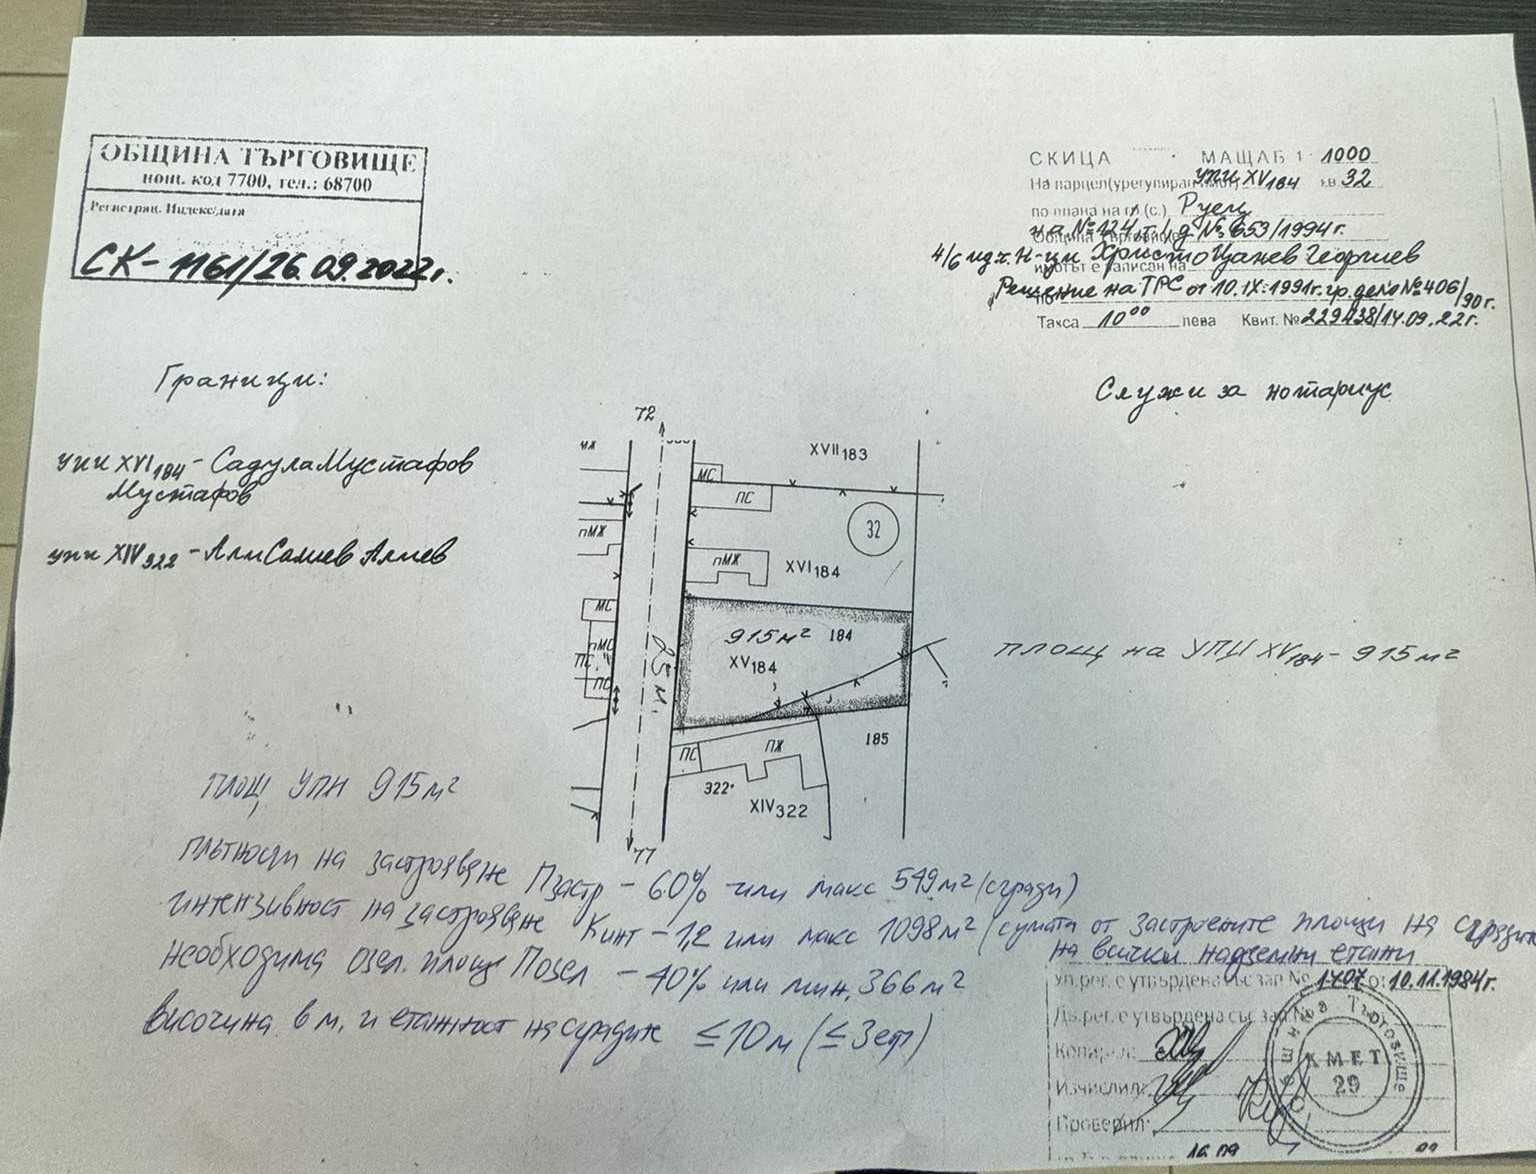 ОБЩИНА ТЪРГОВИЩЕ
пощ. код 7700, тел.: 68700
Регистрац. Индекс/дата
СК- 1161/26.09.2022г.
СКИЦА МАЩАБ 1: 1000
На парцел(урегулиран УПИ XV184 кв 32
по плана на гр (с.) Руец
на №124, т. I, д №653/1994г.
4/6 ид.ч. Н-ци Христо Цанев Георгиев
имотът е записан на
Решение на ТРС от 10.IX.1991г. гр. дело №406/90г.
Такса 10 00 лева Квит. № 229438/14.09.22г.
Граници:
Служи за нотариус
упи XVI184 - Садула Мустафов
Мустафов
упи XIV322 - Али Салиев Алиев
72
XVII183
МЖ
МС
ПС
32
пМЖ
пМЖ
XVI184
МС
915м² 184
пМС
ПС
XV184
ПС
площ на УПИ XV184 - 915м²
185
ПС
ПЖ
322
XIV322
77
площ УПИ 915м²
плътност на застрояване Пзастр - 60% или макс 549м² (сгради)
интензивност на застрояване Кинт - 1,2 или макс 1098м² (сумата от застроените площи на сградите
на всички надземни етажи
необходима озел. площ Позел - 40% или мин. 366м²
височина в м. и етажност на сградите ≤10м (≤3ет)
Ул.рег. е утвърдена със зап № 1407 от 10.11.1984г.
Дв.рег. е утвърдена със зап №
Копирал:
Изчислил:
Проверил:
Община Търговище
КМЕТ
29
16.09